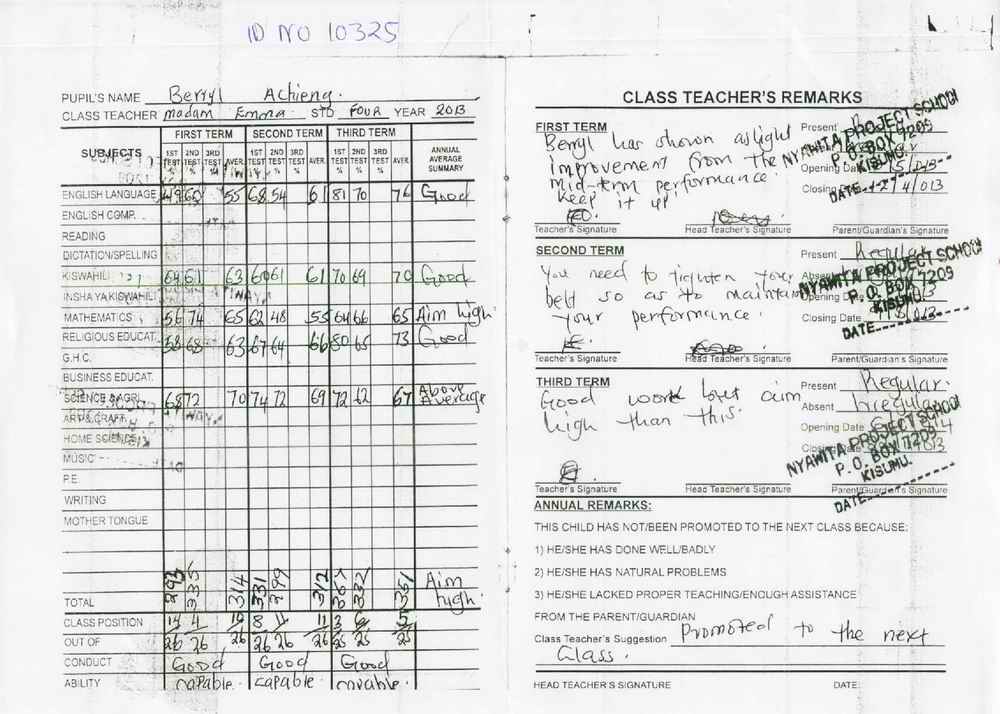 ID NO 10325
PUPIL'S NAME Berryl Achieng.
CLASS TEACHER madam Emma STD FOUR YEAR 2013
FIRST TERM SECOND TERM THIRD TERM
SUBJECTS 1ST TEST % 2ND TEST % 3RD TEST % AVER. 1ST TEST % 2ND TEST % 3RD TEST % AVER. 1ST TEST % 2ND TEST % 3RD TEST % AVER. ANNUAL AVERAGE SUMMARY
ENGLISH LANGUAGE 49 60 55 68 54 61 81 70 76 Good
ENGLISH COMP.
READING
DICTATION/SPELLING
KISWAHILI 64 61 63 60 61 61 70 69 70 Good
INSHA YA KISWAHILI
MATHEMATICS 56 74 65 62 48 55 64 66 65 Aim high
RELIGIOUS EDUCAT. 58 68 63 67 64 66 80 65 73 Good
G.H.C.
BUSINESS EDUCAT.
SCIENCE & AGRI. 68 72 70 74 72 69 72 62 67 Above Average
ART & CRAFT
HOME SCIENCE
MUSIC
P.E
WRITING
MOTHER TONGUE
TOTAL 335 314 331 299 312 367 332 351 Aim high.
CLASS POSITION 14 4 10 8 11 3 6 5
OUT OF 26 26 26 26 26 26 25 25 25
CONDUCT Good Good Good
ABILITY capable. capable. capable.
CLASS TEACHER'S REMARKS
FIRST TERM
Berryl has shown a slight
improvement from the
mid-term performance.
Keep it up
Present
Opening Date
Closing
NYAWITA PROJECT SCHOOL
P. O. BOX 7209
KISUMU.
DATE
Teacher's Signature Head Teacher's Signature Parent/Guardian's Signature
SECOND TERM
You need to tighten your
belt so as to maintain
your performance.
Present Regular
Opening Date
Closing Date
NYAWITA PROJECT SCHOOL
P. O. BOX 7209
KISUMU.
DATE
Teacher's Signature Head Teacher's Signature Parent/Guardian's Signature
THIRD TERM
Good work but aim
high than this.
Present Regular.
Absent Irregular
Opening Date
Closing
NYAWITA PROJECT SCHOOL
P. O. BOX 7209
KISUMU.
DATE
Teacher's Signature Head Teacher's Signature Parent/Guardian's Signature
ANNUAL REMARKS:
THIS CHILD HAS NOT/BEEN PROMOTED TO THE NEXT CLASS BECAUSE:
1) HE/SHE HAS DONE WELL/BADLY
2) HE/SHE HAS NATURAL PROBLEMS
3) HE/SHE LACKED PROPER TEACHING/ENOUGH ASSISTANCE
FROM THE PARENT/GUARDIAN
Class Teacher's Suggestion Promoted to the next
Class.
HEAD TEACHER'S SIGNATURE DATE: